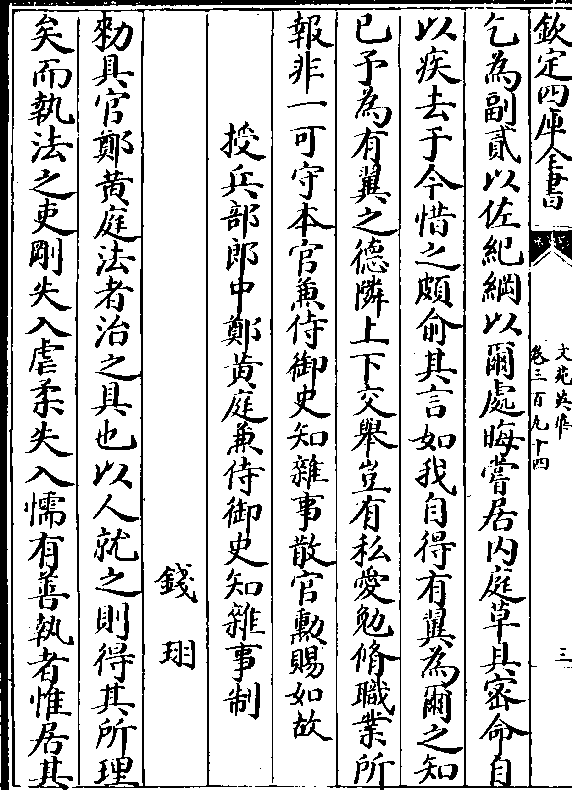 欽定四庫全書
文苑英華
卷三百九十四
三
乞為副貳以佐紀綱以爾處晦嘗居内庭草具密命自
以疾去于今惜之頗俞其言如我自得有翼為爾之知
已予為有翼之德隣上下交舉豈有私愛勉脩職業所
報非一可守本官兼侍御史知雜事散官勲賜如故
授兵部郎中鄭黄庭兼侍御史知雜事制
錢珝
勅具官鄭黄庭法者治之具也以人就之則得其所理
矣而執法之吏剛失入虐柔失入懦有善執者惟居其